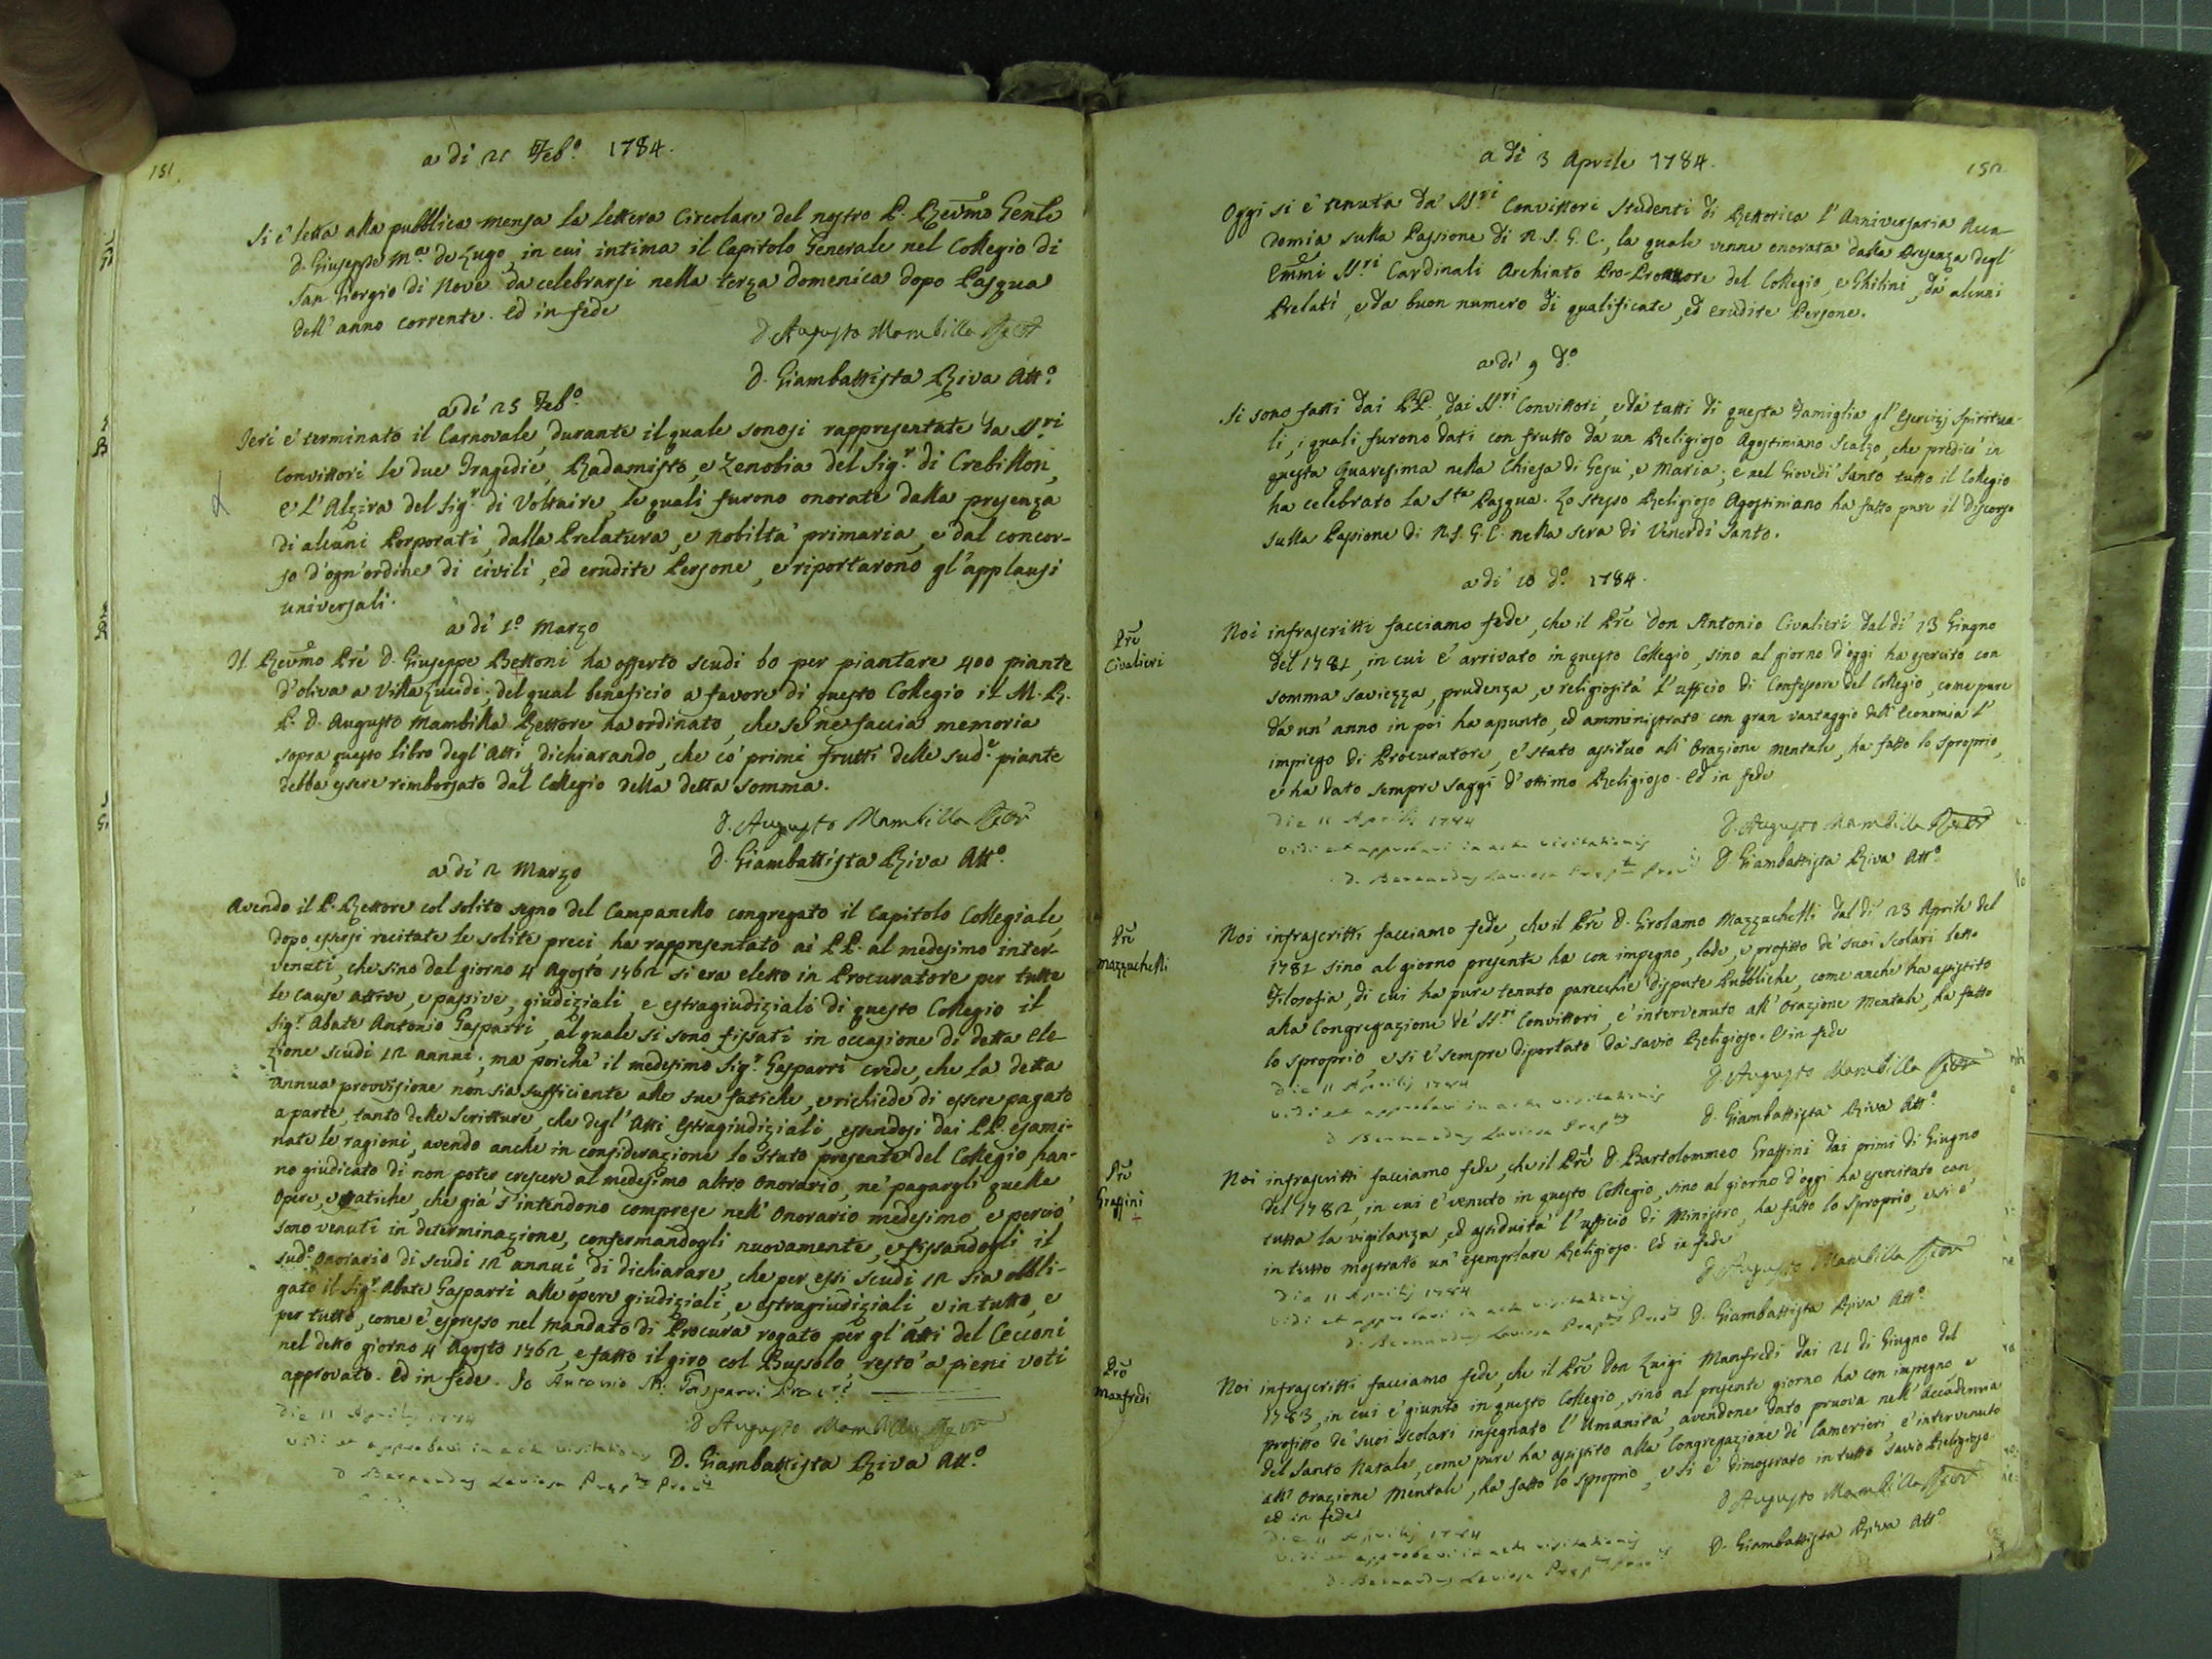 151.
a dì 21 Feb.º 1784.
Si è letta alla pubblica mensa la lettera Circolare del nostro P. Revmo Genle
D. Giuseppe M.a de Lugo, in cui intima il Capitolo Generale nel Collegio di
San Giorgio di Nove da celebrarsi nella terza Domenica dopo Pasqua
dell'anno corrente. Ed in fede
D. Augusto Mambilla Rett
D. Giambattista Riva Att.º
a dì 25 Feb.º
Jeri è terminato il Carnovale, durante il quale sonosi rappresentate da SS.ri
Convittori le due Tragedie, Radamisto, e Zenobia del Sig.r di Crebillon,
e l'Alzira del Sig.r di Voltaire, le quali furono onorate dalla presenza
di alcuni Porporati, dalla Prelatura, e Nobiltà primaria, e dal concor-
so d'ogn'ordine di civili, ed erudite Persone, e riportarono gl'applausi
universali.
a dì 1.º Marzo
Il Revmo Pre D. Giuseppe Bettoni ha offerto scudi 60 per piantare 400 piante
d'oliva a Villa Lucidi; del qual beneficio a favore di questo Collegio il M. R.
P. D. Augusto Mambilla Rettore ha ordinato, che se ne faccia memoria
sopra questo libro degl'Atti, dichiarando, che co' primi frutti delle sud.e piante
debba essere rimborsato dal Collegio della detta somma.
D. Augusto Mambilla Rettr
D. Giambattista Riva Att.º
a dì 2 Marzo
Avendo il P. Rettore col solito segno del Campanello congregato il Capitolo Collegiale,
dopo essersi recitate le solite preci ha rappresentato ai PP. al medesimo inter-
venuti, che sino dal giorno 4 Agosto 1762 si era eletto in Procuratore per tutte
le cause attive, e passive, giudiziali, e estragiudiziali di questo Collegio il
Sig.r Abate Antonio Gasparri, al quale si sono fissati in occasione di detta ele-
zione scudi 12 annui; ma poichè il medesimo Sig.r Gasparri crede, che la detta
annua provvisione non sia sufficiente alle sue fatiche, e richiede di essere pagato
a parte, tanto delle Scritture, che degl'Atti Estragiudiziali, essendosi dai PP. esami-
nate le ragioni, avendo anche in considerazione lo Stato presente del Collegio, han-
no giudicato di non poter crescere al medesimo altro Onorario, nè pagargli quelle
Opere, e fatiche, che già s'intendono comprese nell'Onorario medesimo, e perciò
sono venuti in determinazione, confermandogli nuovamente, e fissandogli il
sud.º Onorario di scudi 12 annui, di dichiarare, che per essi scudi 12 sia obbli-
gato il Sig.r Abate Gasparri alle opere giudiziali, e estragiudiziali, e in tutto, e
per tutto, come è espresso nel Mandato di Procura rogato per gl'Atti del Cecconi
nel detto giorno 4 Agosto 1762, e fatto il giro col Bussolo, restò a pieni voti
approvato. Ed in fede. Io Antonio Gasparri
Die 11 Aprilis 1784
D. Augusto Mambilla Rettr
vidi et approbavi in actu visitationis
D. Giambattista Riva Att.º
D. Bernardus Laviosa Praep.tus Prov.lis
152.
a dì 3 Aprile 1784.
Oggi si è tenuta da' SS.ri Convittori Studenti di Rettorica l'Anniversaria Acca-
demia sulla Passione di N. S. G. C., la quale venne onorata dalla Presenza degl'
Emmi SS.ri Cardinali Archinto Pro-Protettore del Collegio, e Ghilini, da alcuni
Prelati, e da buon numero di qualificate, ed erudite Persone.
a dì 9 d.º
Si sono fatti dai PP., dai SS.ri Convittori, e da tutti di questa Famiglia gl'Esercizj Spiritua-
li, i quali furono dati con frutto da un Religioso Agostiniano Scalzo, che predicò in
questa Quaresima nella Chiesa di Gesù, e Maria; e nel Giovedì Santo tutto il Collegio
ha celebrato la S.ta Pasqua. Lo stesso Religioso Agostiniano ha fatto pure il Discorso
sulla Passione di N. S. G. C. nella sera di Venerdì Santo.
a dì 10 d.º 1784.
Pre
Civalieri
Noi infrascritti facciamo fede, che il Pre Don Antonio Civalieri dal dì 13 Giugno
del 1781, in cui è arrivato in questo Collegio, sino al giorno d'oggi ha esercito con
somma saviezza, prudenza, e religiosità l'ufficio di Confessore del Collegio, come pure
da un'anno in poi ha apunto, ed amministrato con gran vantaggio dell'Economia l'
impiego di Procuratore, è stato assiduo all'Orazione Mentale, ha fatto lo sproprio,
e ha dato sempre saggi d'ottimo Religioso. Ed in fede
Die 11 Aprilis 1784
D. Augusto Mambilla Rettr
vidi et approbavi in actu visitationis
D. Giambattista Riva Att.º
D. Bernardus Laviosa Praep.tus Prov.lis
Pre
Mazzuchelli
Noi infrascritti facciamo fede, che il Pre D. Girolamo Mazzuchelli dal dì 23 Aprile del
1781 sino al giorno presente ha con impegno, lode, e profitto de' suoi Scolari letto
Filosofia, di cui ha pure tenuto parecchie dispute Pubbliche, come anche ha assistito
alla Congregazione de' SS.ri Convittori, è intervenuto all'Orazione Mentale, ha fatto
lo sproprio, e si è sempre diportato da savio Religioso. E in fede
Die 11 Aprilis 1784
D. Augusto Mambilla Rettr
vidi et approbavi in actu visitationis
D. Giambattista Riva Att.º
D. Bernardus Laviosa Praep.tus
Pre
Graffini
Noi infrascritti facciamo fede, che il Pre D. Bartolommeo Graffini dai primi di Giugno
del 1782, in cui è venuto in questo Collegio, sino al giorno d'oggi ha esercitato con
tutta la vigilanza, ed assiduità l'ufficio di Ministro, ha fatto lo sproprio, e si è
in tutto mostrato un'esemplare Religioso. Ed in fede
D. Augusto Mambilla Rettr
Die 11 Aprilis 1784
vidi et approbavi in actu visitationis
D. Bernardus Laviosa Praep.tus Prov.lis D. Giambattista Riva Att.º
Pre
Manfredi
Noi infrascritti facciamo fede, che il Pre Don Luigi Manfredi dai 21 di Giugno del
1783, in cui è giunto in questo Collegio, sino al presente giorno ha con impegno, e
profitto de' suoi Scolari insegnato l'Umanità, avendone dato pruova nell'Accademia
del Santo Natale, come pure ha assistito alla Congregazione de' Camerieri, è intervenuto
all'Orazione Mentale, ha fatto lo sproprio, e si è dimostrato in tutto savio Religioso
ed in fede
D. Augusto Mambilla Rettr
Die 11 Aprilis 1784
vidi et approbavi in actu visitationis
D. Giambattista Riva Att.º
D. Bernardus Laviosa Praep.tus Prov.lis